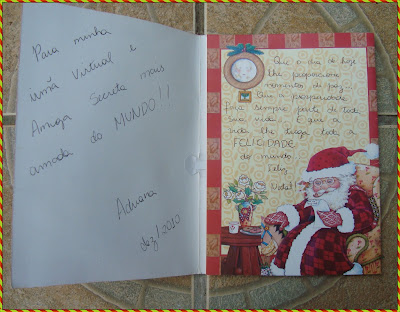 Para minha
irmã virtual e
Amiga Secreta mais
amada do MUNDO!!
Adriana
dez/2010
Que o dia de hoje
lhe proporcione
momentos de paz.
Que a prosperidade
para sempre parte de toda
sua vida e que a
vida lhe traga toda a
FELICIDADE
do mundo!
Feliz
Natal!